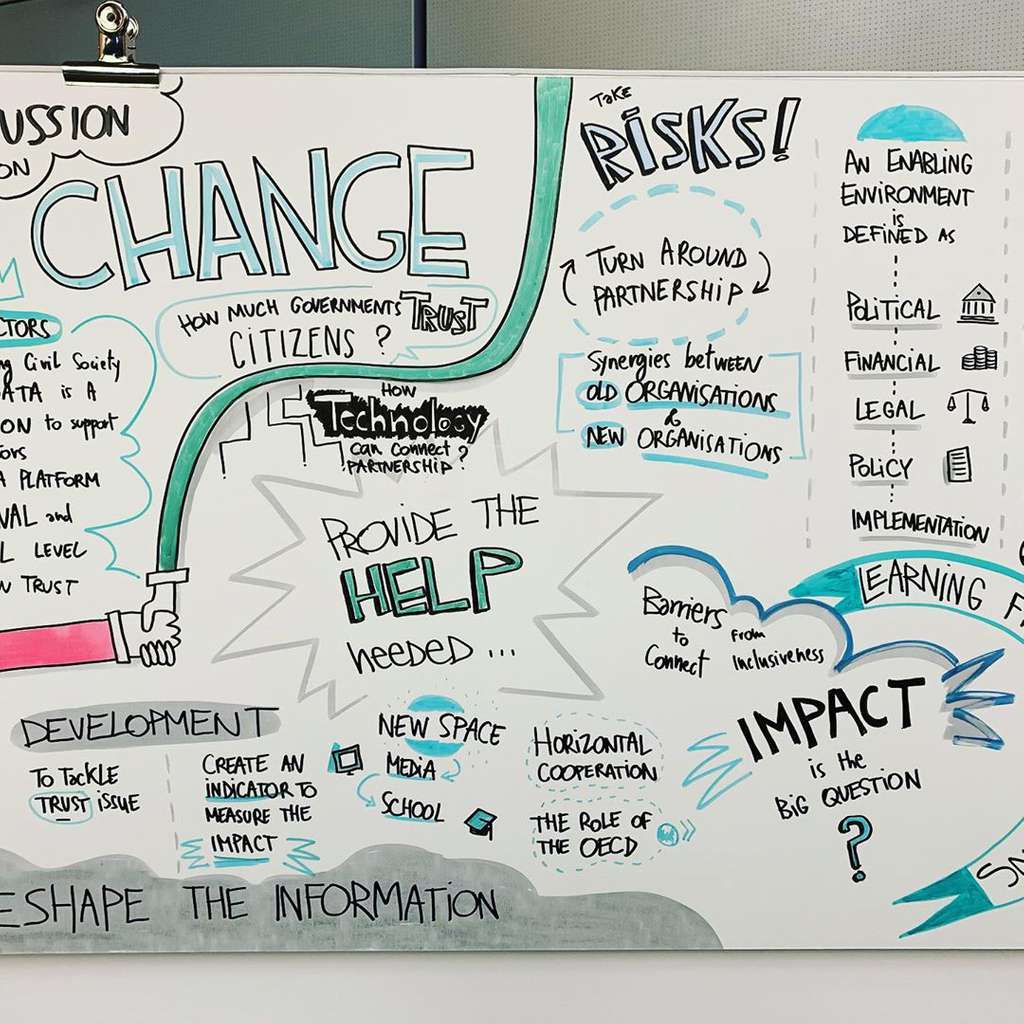 USSION
ON
CHANGE
HOW MUCH GOVERNMENTS TRUST
CITIZENS ?
CTORS
Civil Society
ATA is A
ON to support
A PLATFORM
VAL and
L LEVEL
TRUST
HOW
Technology
can connect ?
PARTNERSHIP
PROVIDE THE
HELP
needed ...
TAKE
RISKS!
TURN AROUND
PARTNERSHIP
Synergies between
OLD ORGANISATIONS
&
NEW ORGANISATIONS
AN ENABLING
ENVIRONMENT
is
DEFINED AS
POLITICAL
FINANCIAL
LEGAL
POLICY
IMPLEMENTATION
LEARNING F
Barriers
to
Connect
From
Inclusiveness
IMPACT
is the
BIG QUESTION
?
DEVELOPMENT
To TACKLE
TRUST iSSUE
CREATE AN
INDICATOR TO
MEASURE THE
IMPACT
NEW SPACE
MEDIA
SCHOOL
HORIZONTAL
COOPERATION
THE ROLE OF
THE OECD
ESHAPE THE INFORMATION